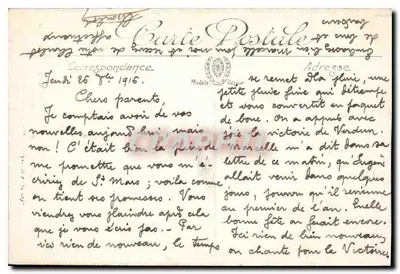 Carte Postale
Correspondance
Adresse
Jeudi 26 8bre 1916.
Chers parents,
Je comptais avoir de vos
nouvelles aujourd'hui, mais
non ! C'était bien la peine de
me promettre que vous m'é-
cririez de St Mars ; voilà comme
on tient ses promesses. Vous
viendrez vous plaindre après cela
que je vous écris pas. Par
ici rien de nouveau, le temps
se remet à la pluie, une
petite pluie fine qui détrempe
et vous convertit en paquet
de boue. On a appris avec
joie la victoire de Verdun.
Marcelle m'a dit dans sa
lettre de ce matin, qu'Eugène
allait venir dans quelques
jours, pourvu qu'il revienne
au premier de l'an. Quelle
bonne fête on ferait encore.
Ici rien de bien nouveau,
on chante pour la Victoire.
Embrassez bien Marcelle pour moi